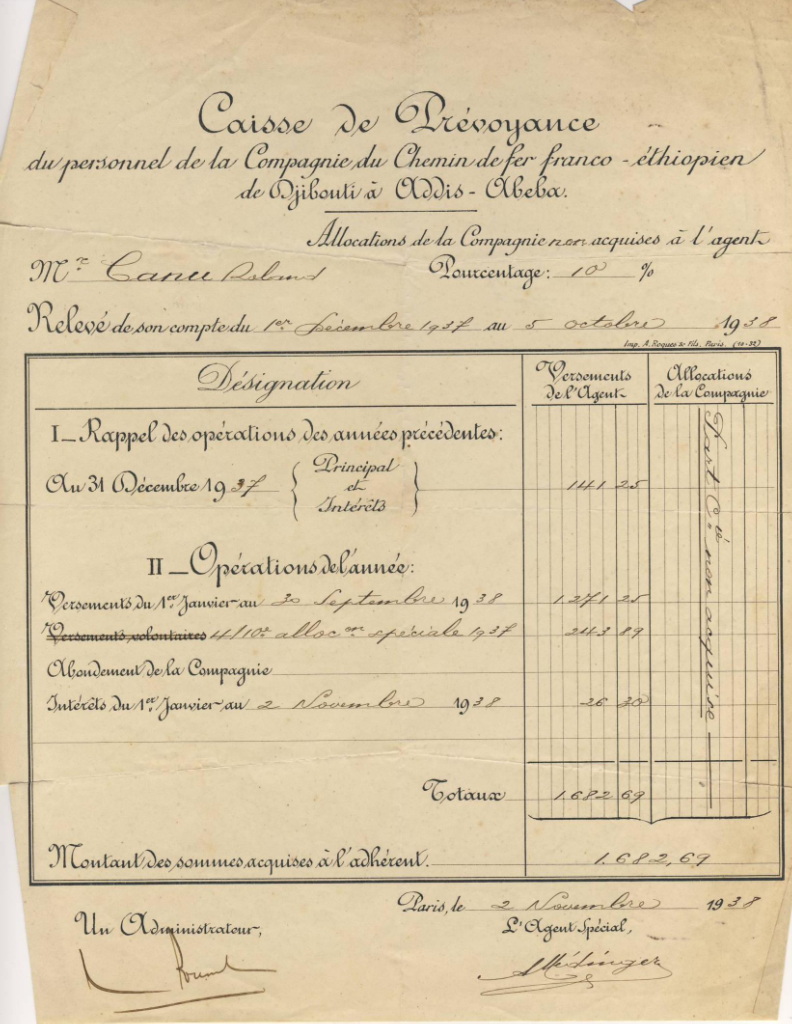 Caisse de Prévoyance
du personnel de la Compagnie du Chemin de fer franco-éthiopien
de Djibouti à Addis-Abeba.
Allocations de la Compagnie non acquises à l'agent
Mr Canu Roland Pourcentage: 10 %
Relevé de son compte du 1er Décembre 1937 au 5 octobre 1938
Imp. A. Roques & Fils, Paris. (10-32)
Désignation
Versements de l'Agent
Allocations de la Compagnie
I_Rappel des opérations des années précédentes:
Au 31 Décembre 1937 { Principal et Intérêts } 141 25
Part Cie non acquise
II_Opérations de l'année:
Versements du 1er Janvier au 30 Septembre 1938 1.271 25
Versements volontaires 4/10e allocon spéciale 1937 243 89
Abondement de la Compagnie
Intérêts du 1er Janvier au 2 Novembre 1938 26 30
Totaux 1.682 69
Montant des sommes acquises à l'adhérent. 1.682,69
Paris, le 2 Novembre 1938
Un Administrateur, L'Agent Spécial,